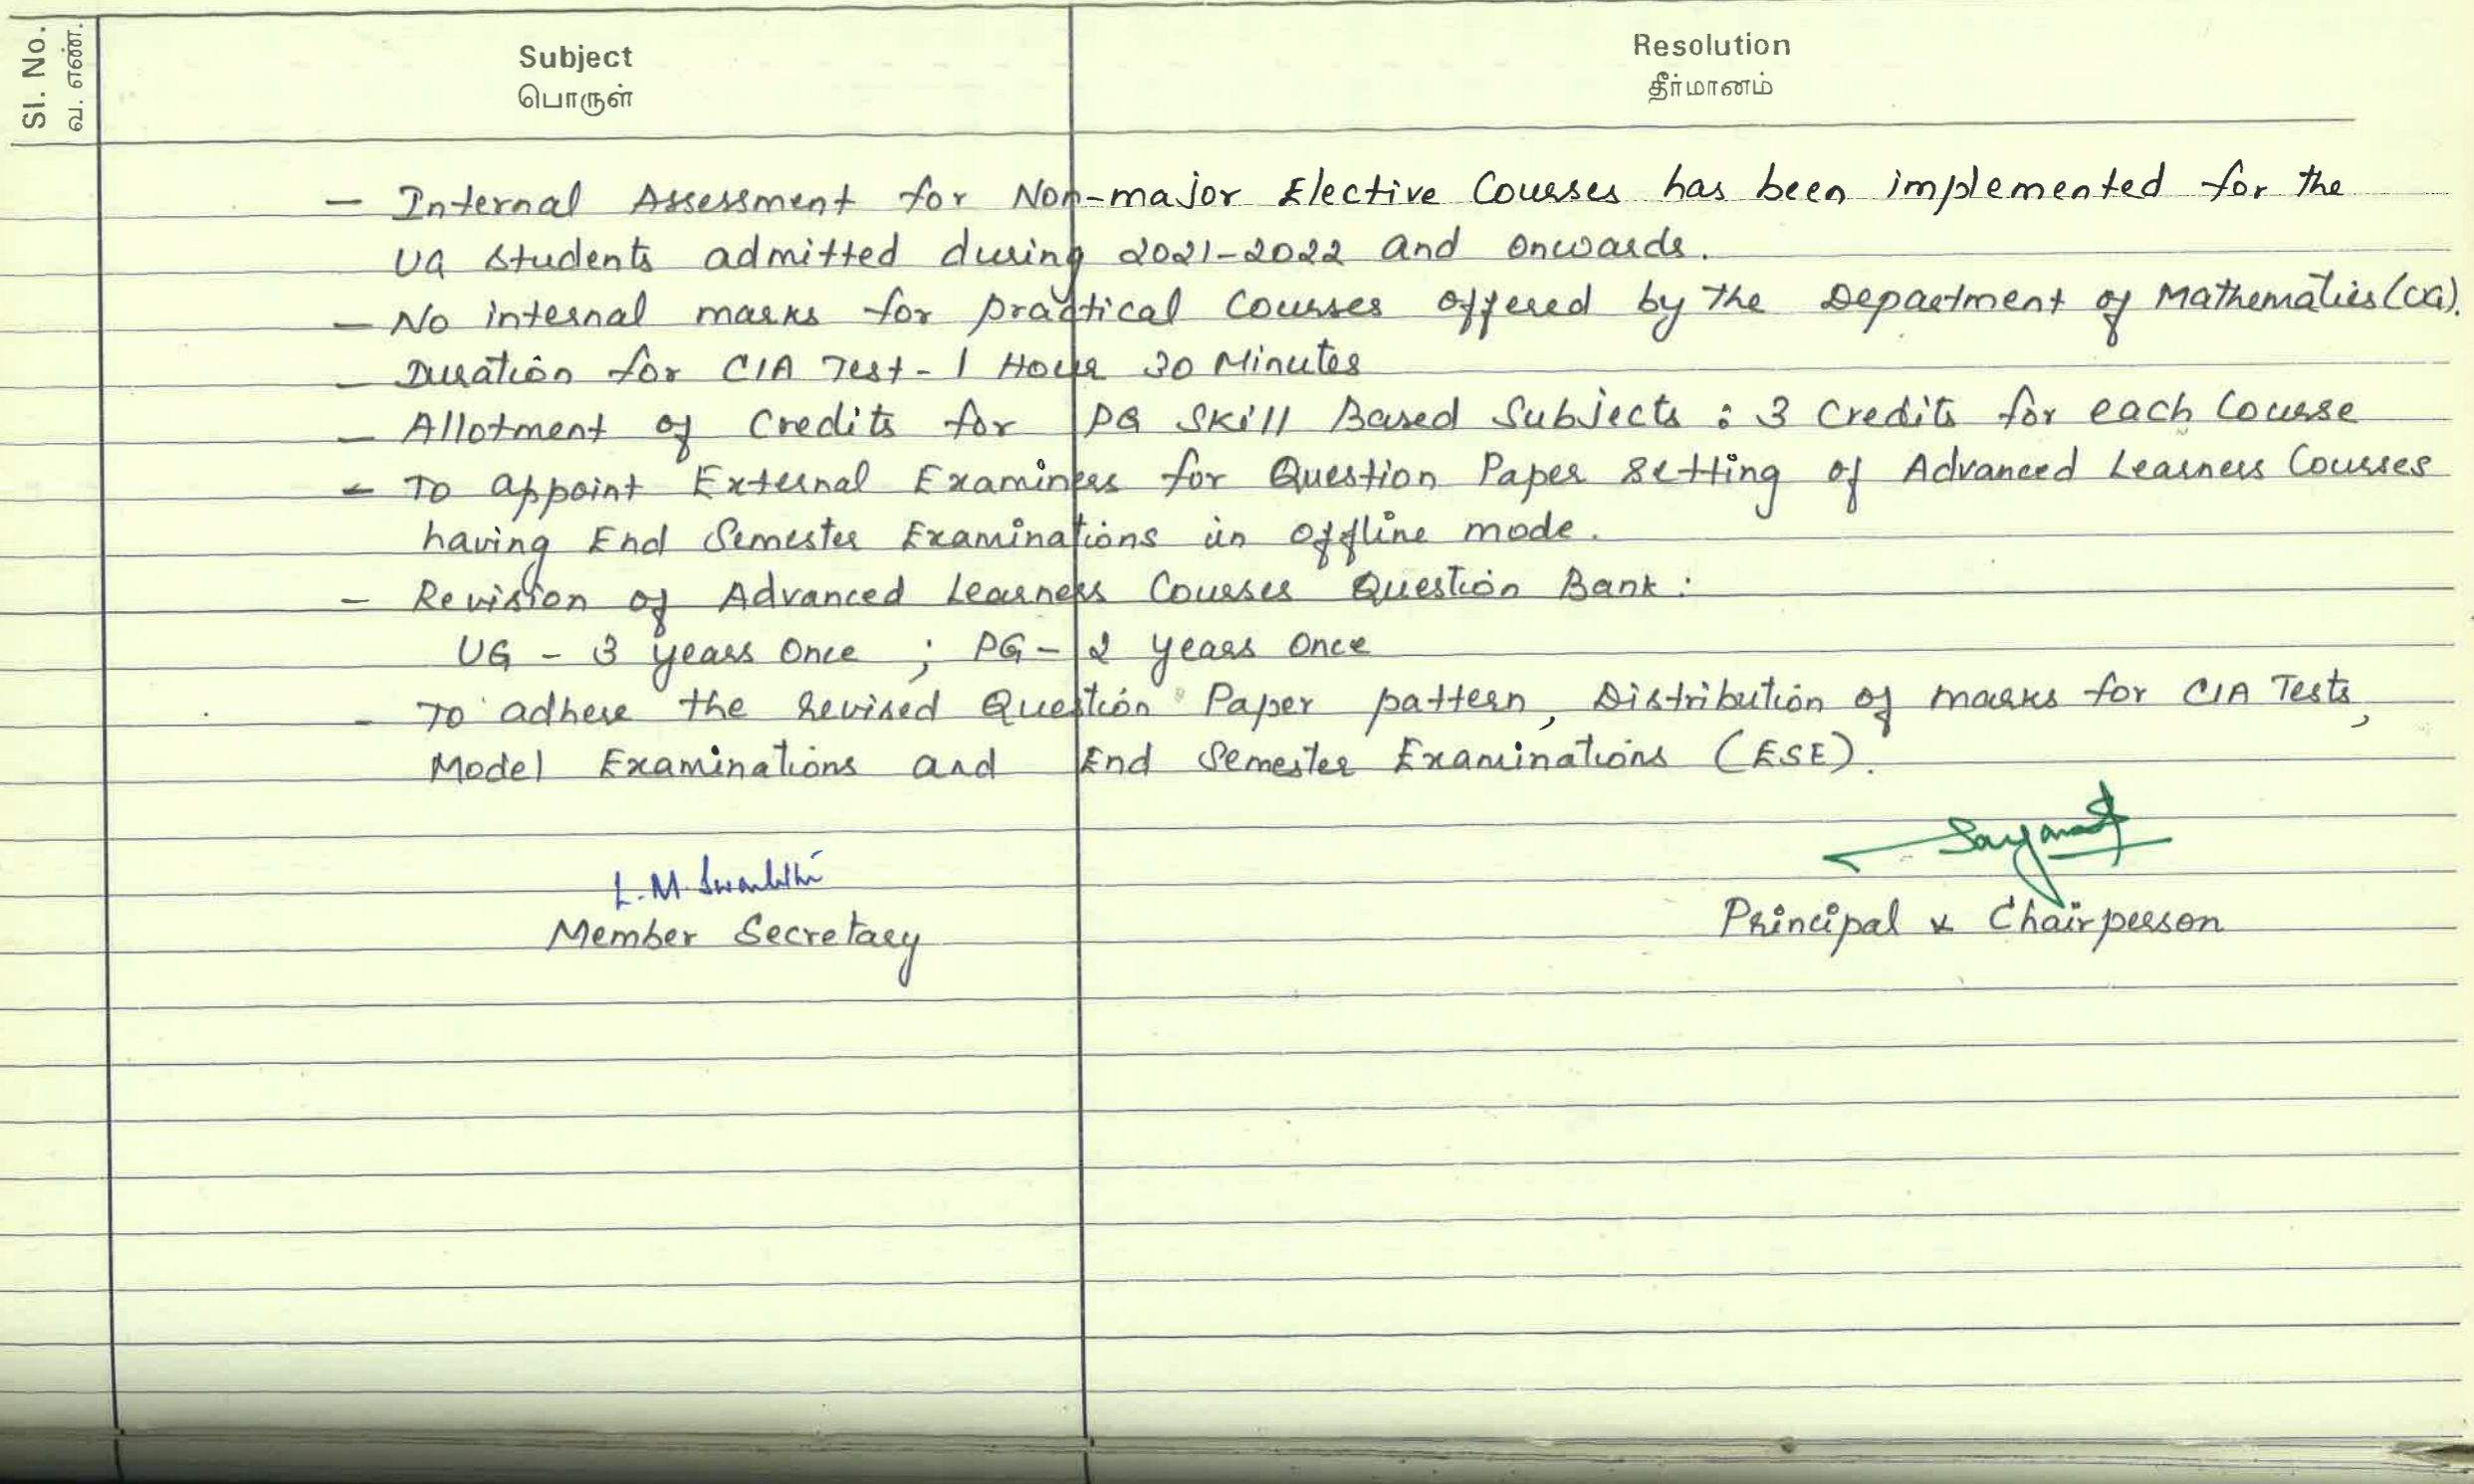 Sl. No.
வ. எண்.
Subject
பொருள்
Resolution
தீர்மானம்
- Internal Assessment for Non-major Elective Courses has been implemented for the
UG students admitted during 2021-2022 and onwards.
- No internal marks for practical Courses offered by the Department of Mathematics (CA).
- Duration for CIA Test - 1 Hour 30 Minutes
- Allotment of Credits for PG Skill Based Subjects : 3 Credits for each Course
- To appoint External Examiners for Question Paper Setting of Advanced Learners Courses
having End Semester Examinations in offline mode.
- Revision of Advanced Learners Courses Question Bank :
UG - 3 years Once ; PG - 2 years Once
- To adhere the revised Question Paper pattern, Distribution of marks for CIA Tests,
Model Examinations and End Semester Examinations (ESE).
L.M.
Member Secretary
Principal & Chairperson